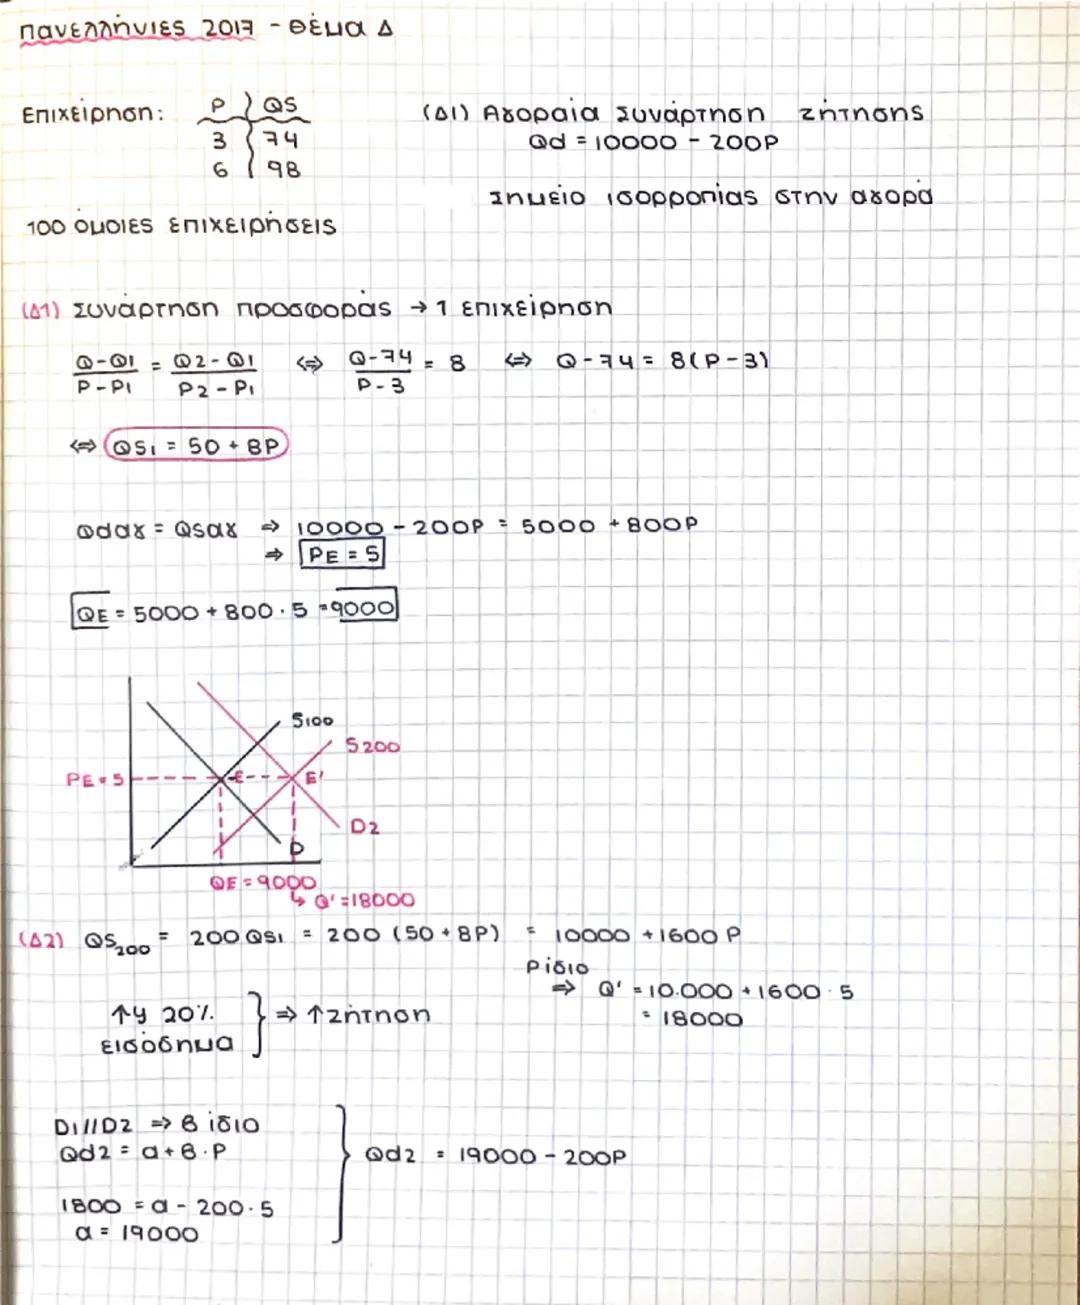 Πανελλήνιες 2017 - Θέμα Δ
Επιχείρηση:
P | QS
3 | 74
6 | 98
(Δ1) Αγοραία Συνάρτηση ζήτησης
Qd = 10000 - 200P
Σημείο ισορροπίας στην αγορά
100 όμοιες επιχειρήσεις
(Δ1) Συνάρτηση προσφοράς → 1 επιχείρηση
Q-Q1 / P-P1 = Q2-Q1 / P2-P1 ⇔ Q-74 / P-3 = 8 ⇔ Q-74 = 8(P-3)
⇔ QS1 = 50 + 8P
Qdαγ = Qsαγ ⇒ 10000 - 200P = 5000 + 800P
⇒ PE = 5
QE = 5000 + 800·5 = 9000
S100
S200
PE = 5
E
E'
D2
D
QE = 9000
↳ Q' = 18000
(Δ2) QS200 = 200QS1 = 200 (50+8P) = 10000 + 1600P
P ίδιο
⇒ Q' = 10.000 + 1600·5
= 18000
↑y 20% } ⇒ ↑ζήτηση
εισόδημα
D1//D2 ⇒ β ίδιο
Qd2 = α + β·P
} Qd2 = 19000 - 200P
1800 = α - 200·5
α = 19000